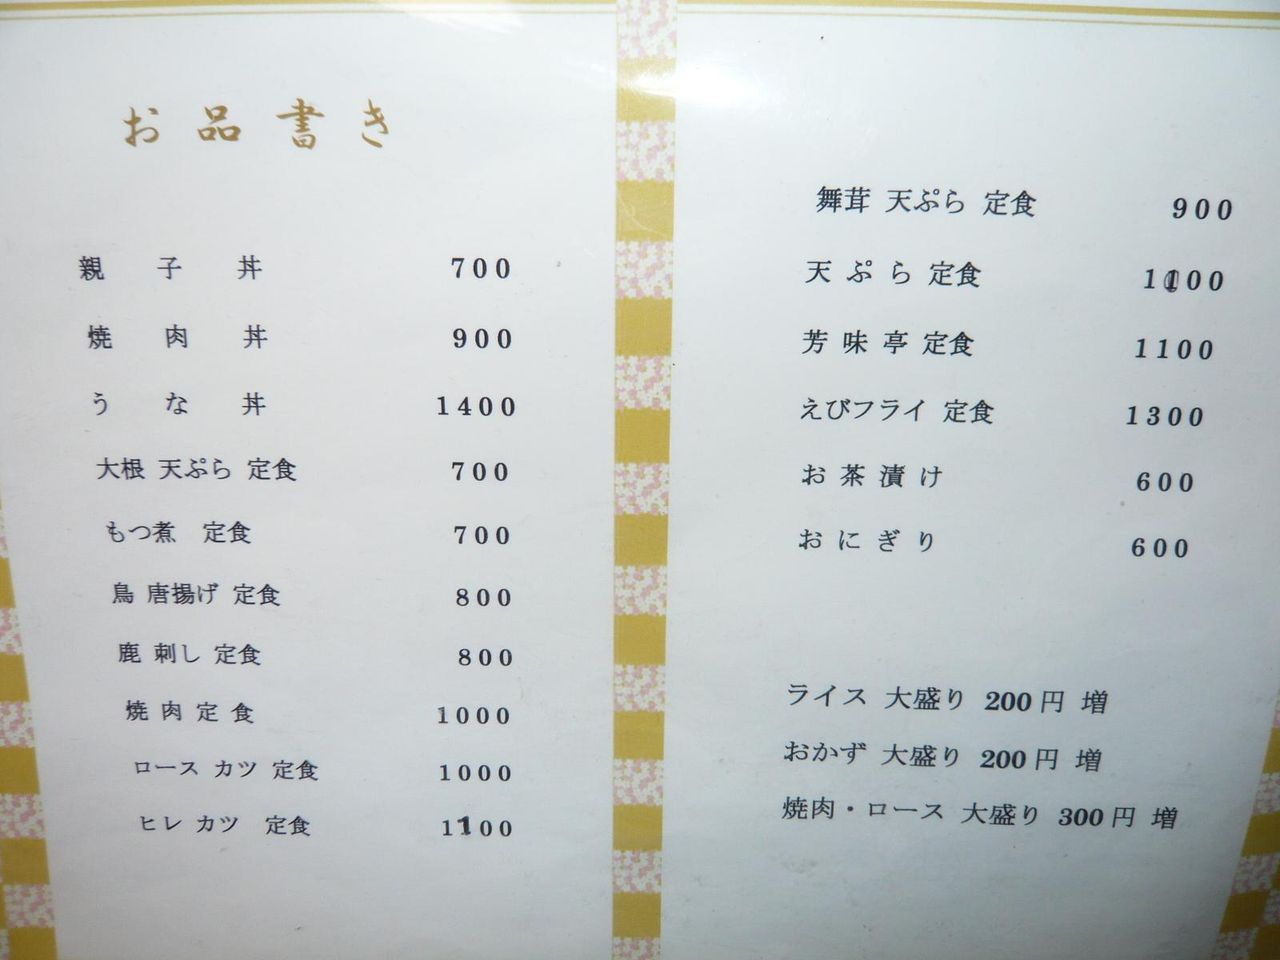 お品書き
親子丼 700
焼肉丼 900
うな丼 1400
大根 天ぷら 定食 700
もつ煮 定食 700
鳥 唐揚げ 定食 800
鹿 刺し 定食 800
焼肉定食 1000
ロース カツ 定食 1000
ヒレ カツ 定食 1100
舞茸 天ぷら 定食 900
天ぷら 定食 1100
芳味亭 定食 1100
えびフライ 定食 1300
お茶漬け 600
おにぎり 600
ライス 大盛り 200円 増
おかず 大盛り 200円 増
焼肉・ロース 大盛り 300円 増